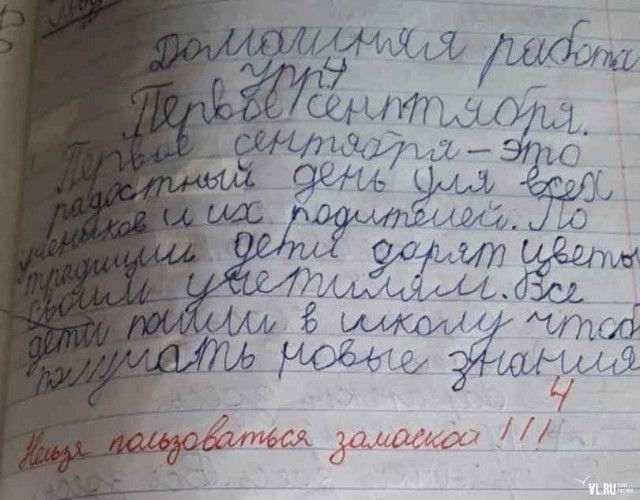 Домашняя работа
Упр4
Первое сентября.
Первые сентября - это
радостный день для всех
учеников и их родителей. По
традиции дети дарят цветы
своим учетилям. Все
дети пошли в школу чтоб
получать новые знания
4
Нельзя пользоваться замаской!!!
VL.RU